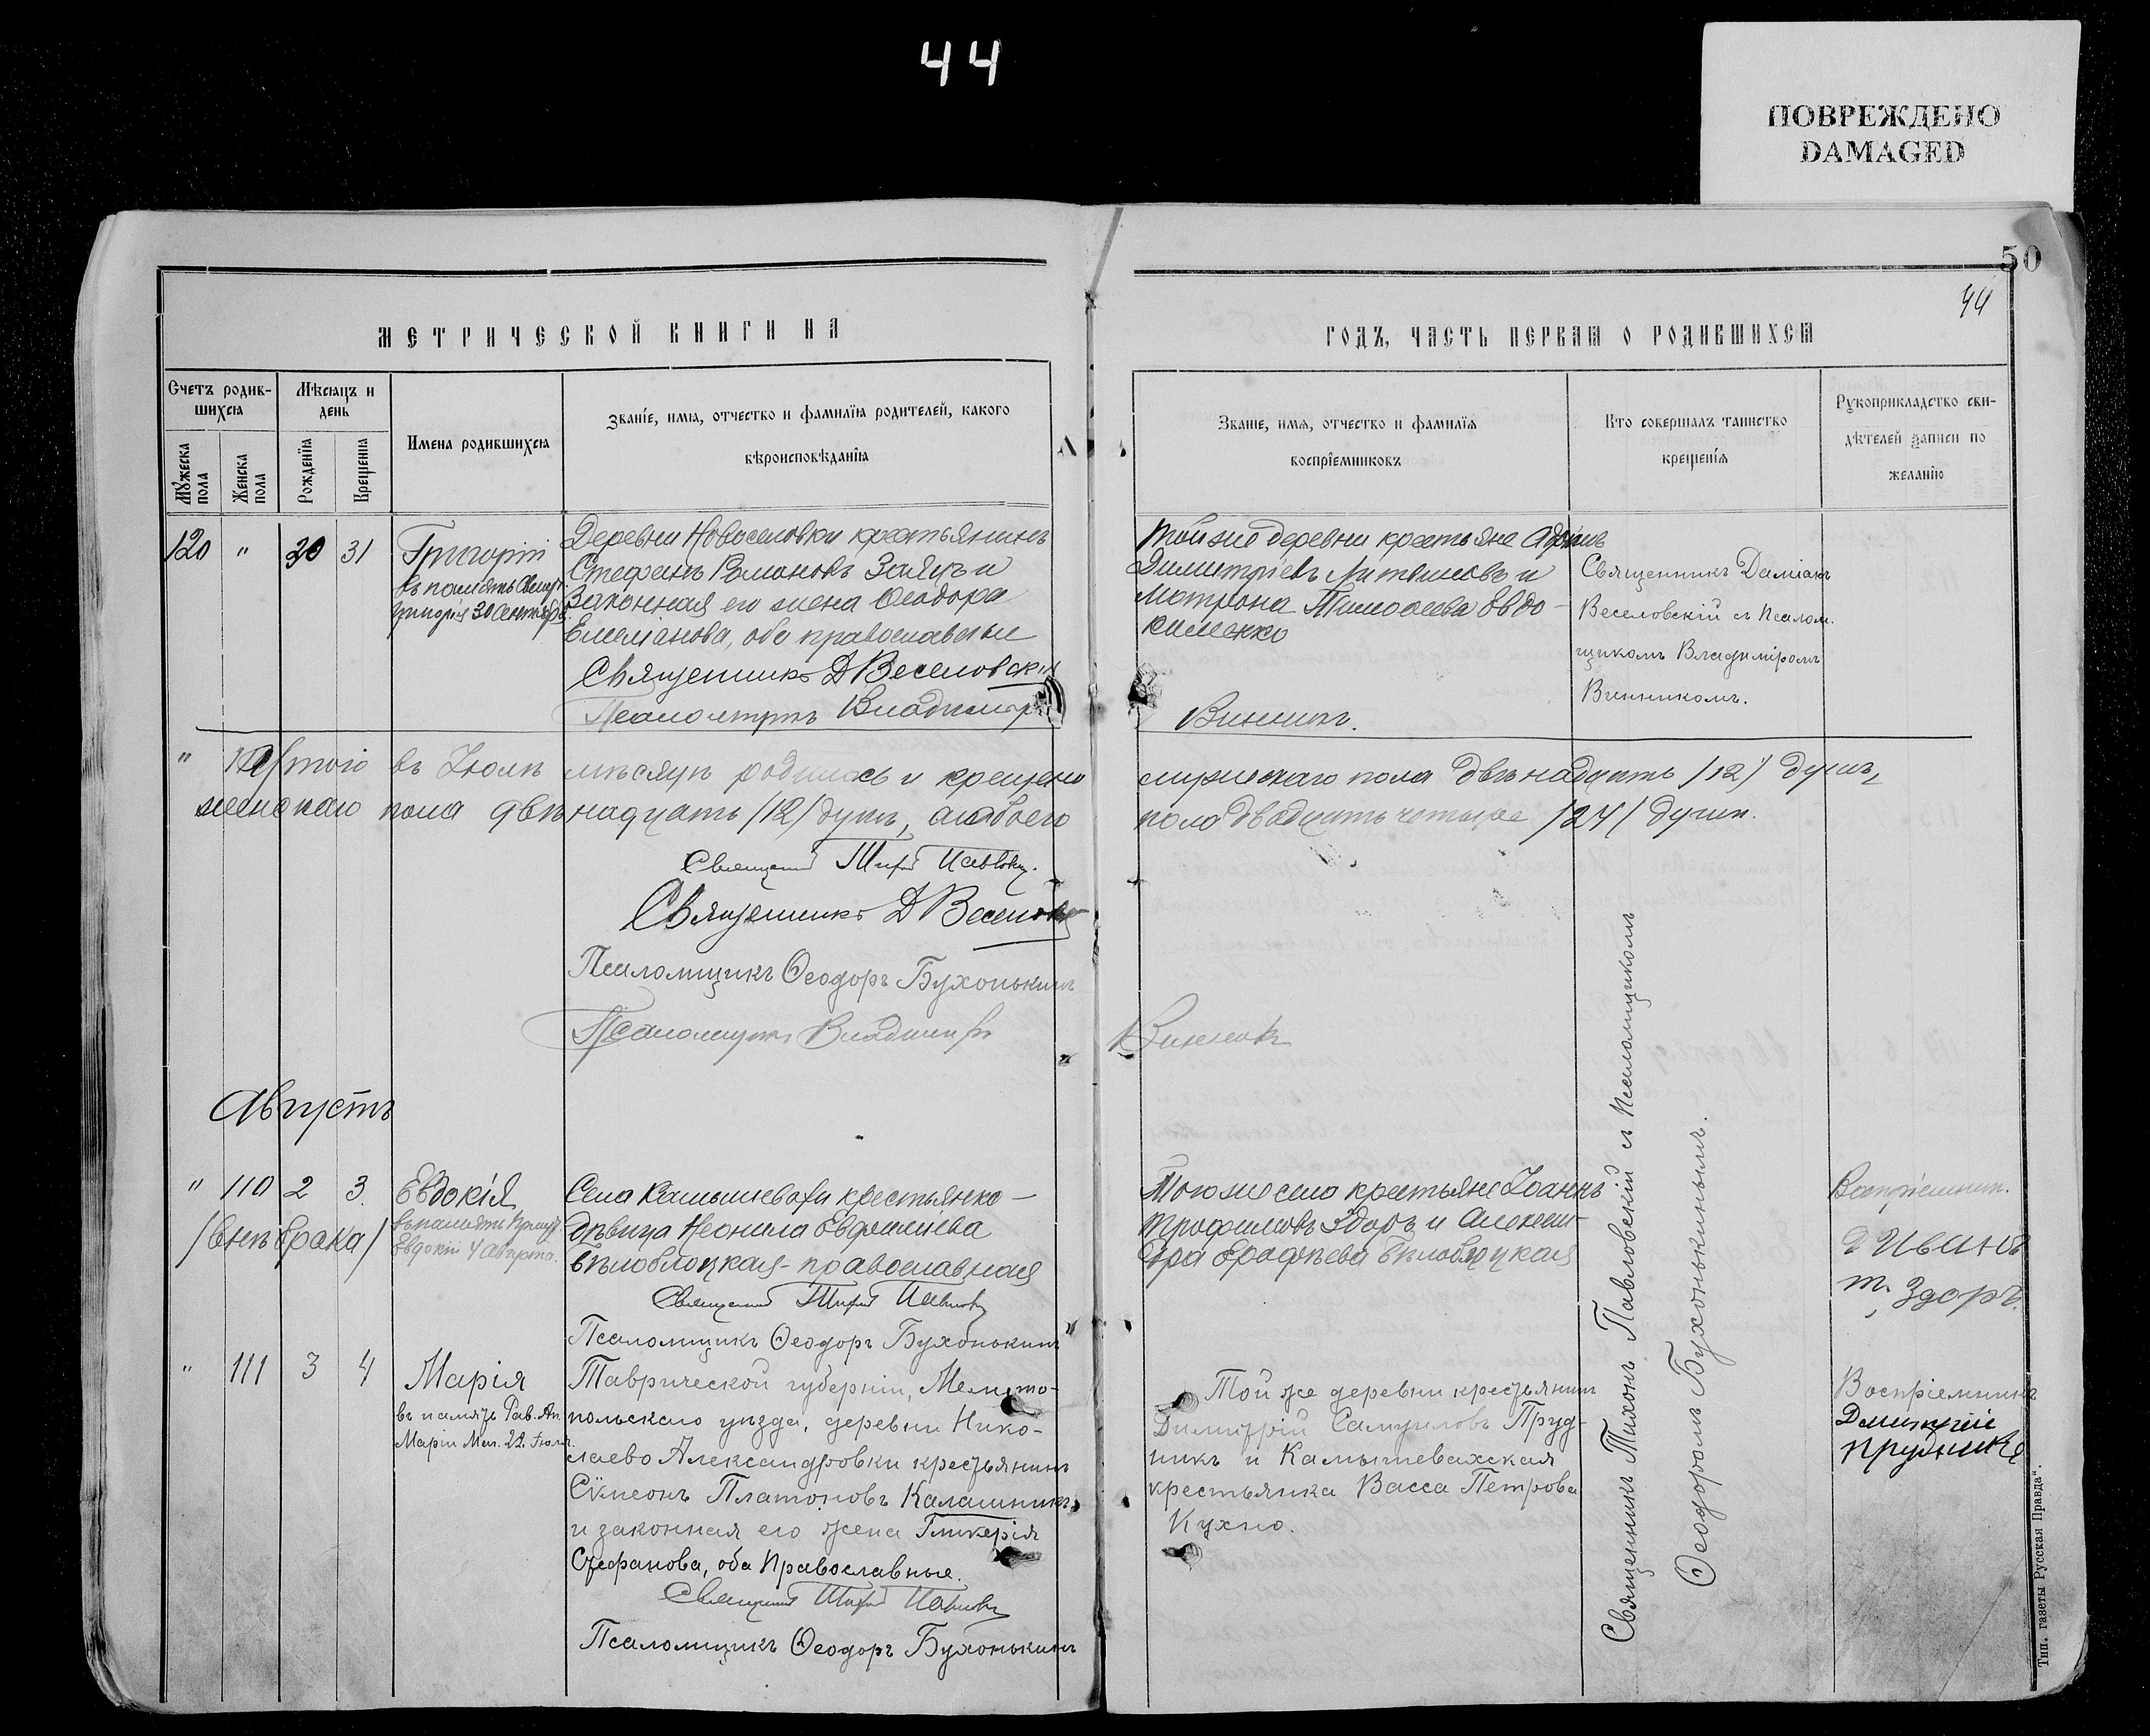 44
ПОВРЕЖДЕНО
DAMAGED
50
44
МЕТРИЧЕСКОЙ КНИГИ НА
ГОДЪ, ЧАСТЬ ПЕРВАЯ О РОДИВШИХСЯ
Счетъ родив-
шихся
Мужеска пола
Женска пола
Мѣсяцъ и
день
Рожденія
Крещенія
Имена родившихся
Званіе, имя, отчество и фамилія родителей, какого
вѣроисповѣданія
Званіе, имя, отчество и фамилія
воспріемниковъ
Кто совершалъ таинство
крещенія
Рукоприкладство сви-
дѣтелей записи по
желанію
120 " 30 31
Григорій
въ память
Григорія 30 Сентября
Деревни Новоселовки крестьянинъ
Стефанъ Романовъ Заяцъ и
Законная его жена Ѳеодора
Емеліанова, оба православные
Священникъ Д Веселовскій
Псаломщикъ Владиміръ
Той же деревни крестьяне
Димитріевъ Литвиновъ и
Матрона Тимоѳеева Евдо-
кименко
Винникъ.
Священникъ Даміанъ
Веселовскій съ Псалом-
щикомъ Владиміромъ
Винникомъ.
" Итого въ Іюлѣ мѣсяцѣ родилось и крещено
мужескаго пола двѣнадцать /12/ душъ,
женскаго пола двѣнадцать /12/ душъ, а обоего
пола двадцать четыре /24/ души.
Священникъ
Священникъ Д Веселовскій
Псаломщикъ Ѳеодоръ Бухонькинъ
Псаломщикъ Владиміръ
Винникъ
Августъ
" 110 2 3.
/внѣ брака/
Евдокія
въ память
Евдокіи 4 Августа.
Села Камышевахи крестьянка –
дѣвица Неонила Евфиміева
Бѣлоблоцкая – православная
Священникъ
Псаломщикъ Ѳеодоръ Бухонькинъ
Того же села крестьяне Іоаннъ
Трофимовъ Здоръ и Алексан-
дра Ерофѣева Бѣлоблоцкая
Воспріемник.
Иванъ
т. Здоръ.
" 111 3 4
Марія
въ память Рав. Ап.
Маріи Маг. 22 Іюля.
Таврической губерніи, Мелито-
польскаго уѣзда, деревни Нико-
лаево Александровки крестьянинъ
Сѵмеонъ Платоновъ Калашникъ
и законная его жена Гликерія
Стефанова, оба Православные.
Священникъ
Псаломщикъ Ѳеодоръ Бухонькинъ
Той же деревни крестьянинъ
Димитрій Самуиловъ Пруд-
никъ и Камышевахская
крестьянка Васса Петрова
Кухно.
Воспріемникъ
Дмитрій
Прудникъ
Священникъ Тихонъ Павловскій съ Псаломщикомъ
Ѳеодоромъ Бухонькинымъ.
Тип. газеты „Русская Правда“.